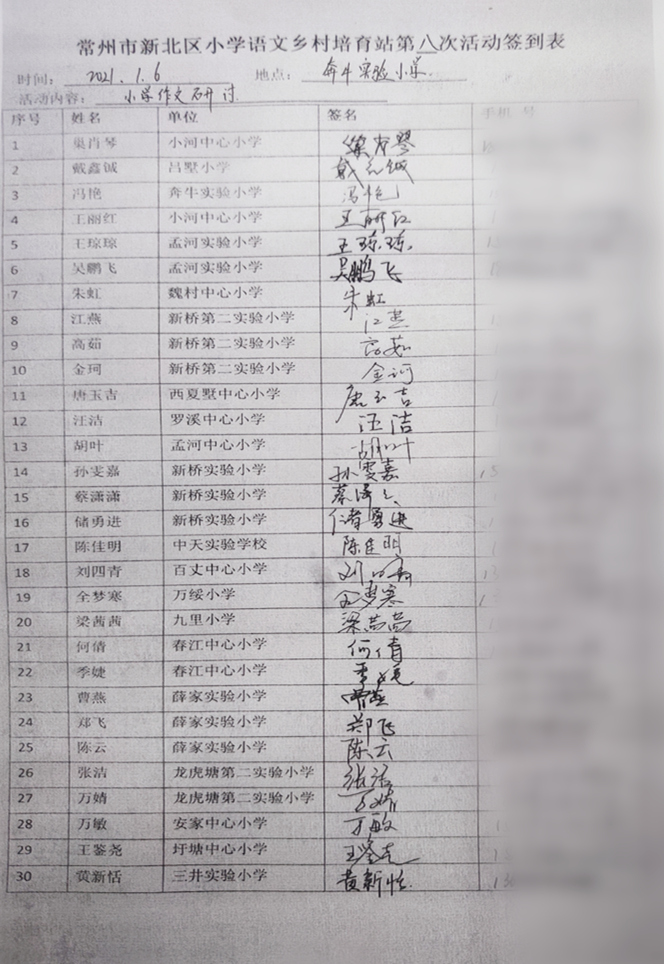 常州市新北区小学语文乡村培育站第八次活动签到表
时间： 2021.1.6 地点： 奔牛实验小学.
活动内容： 小学作文研讨.
序号 姓名 单位 签名 手机 号
1 巢肖琴 小河中心小学 巢肖琴
2 戴鑫铖 吕墅小学 戴鑫铖
3 冯艳 奔牛实验小学 冯艳
4 王丽红 小河中心小学 王丽红
5 王琼琼 孟河实验小学 王琼琼
6 吴鹏飞 孟河实验小学 吴鹏飞
7 朱虹 魏村中心小学 朱虹
8 江燕 新桥第二实验小学 江燕
9 高茹 新桥第二实验小学 高茹
10 金珂 新桥第二实验小学 金珂
11 唐玉吉 西夏墅中心小学 唐玉吉
12 汪洁 罗溪中心小学 汪洁
13 胡叶 孟河中心小学 胡叶
14 孙雯嘉 新桥实验小学 孙雯嘉
15 蔡潇潇 新桥实验小学 蔡潇潇
16 储勇进 新桥实验小学 储勇进
17 陈佳明 中天实验学校 陈佳明
18 刘四青 百丈中心小学 刘四青
19 全梦寒 万绥小学 全梦寒
20 梁茜茜 九里小学 梁茜茜
21 何倩 春江中心小学 何倩
22 季婕 春江中心小学 季婕
23 曹燕 薛家实验小学 曹燕
24 郑飞 薛家实验小学 郑飞
25 陈云 薛家实验小学 陈云
26 张洁 龙虎塘第二实验小学 张洁
27 万婧 龙虎塘第二实验小学 万婧
28 万敏 安家中心小学 万敏
29 王鉴尧 圩塘中心小学 王鉴尧
30 黄新恬 三井实验小学 黄新恬